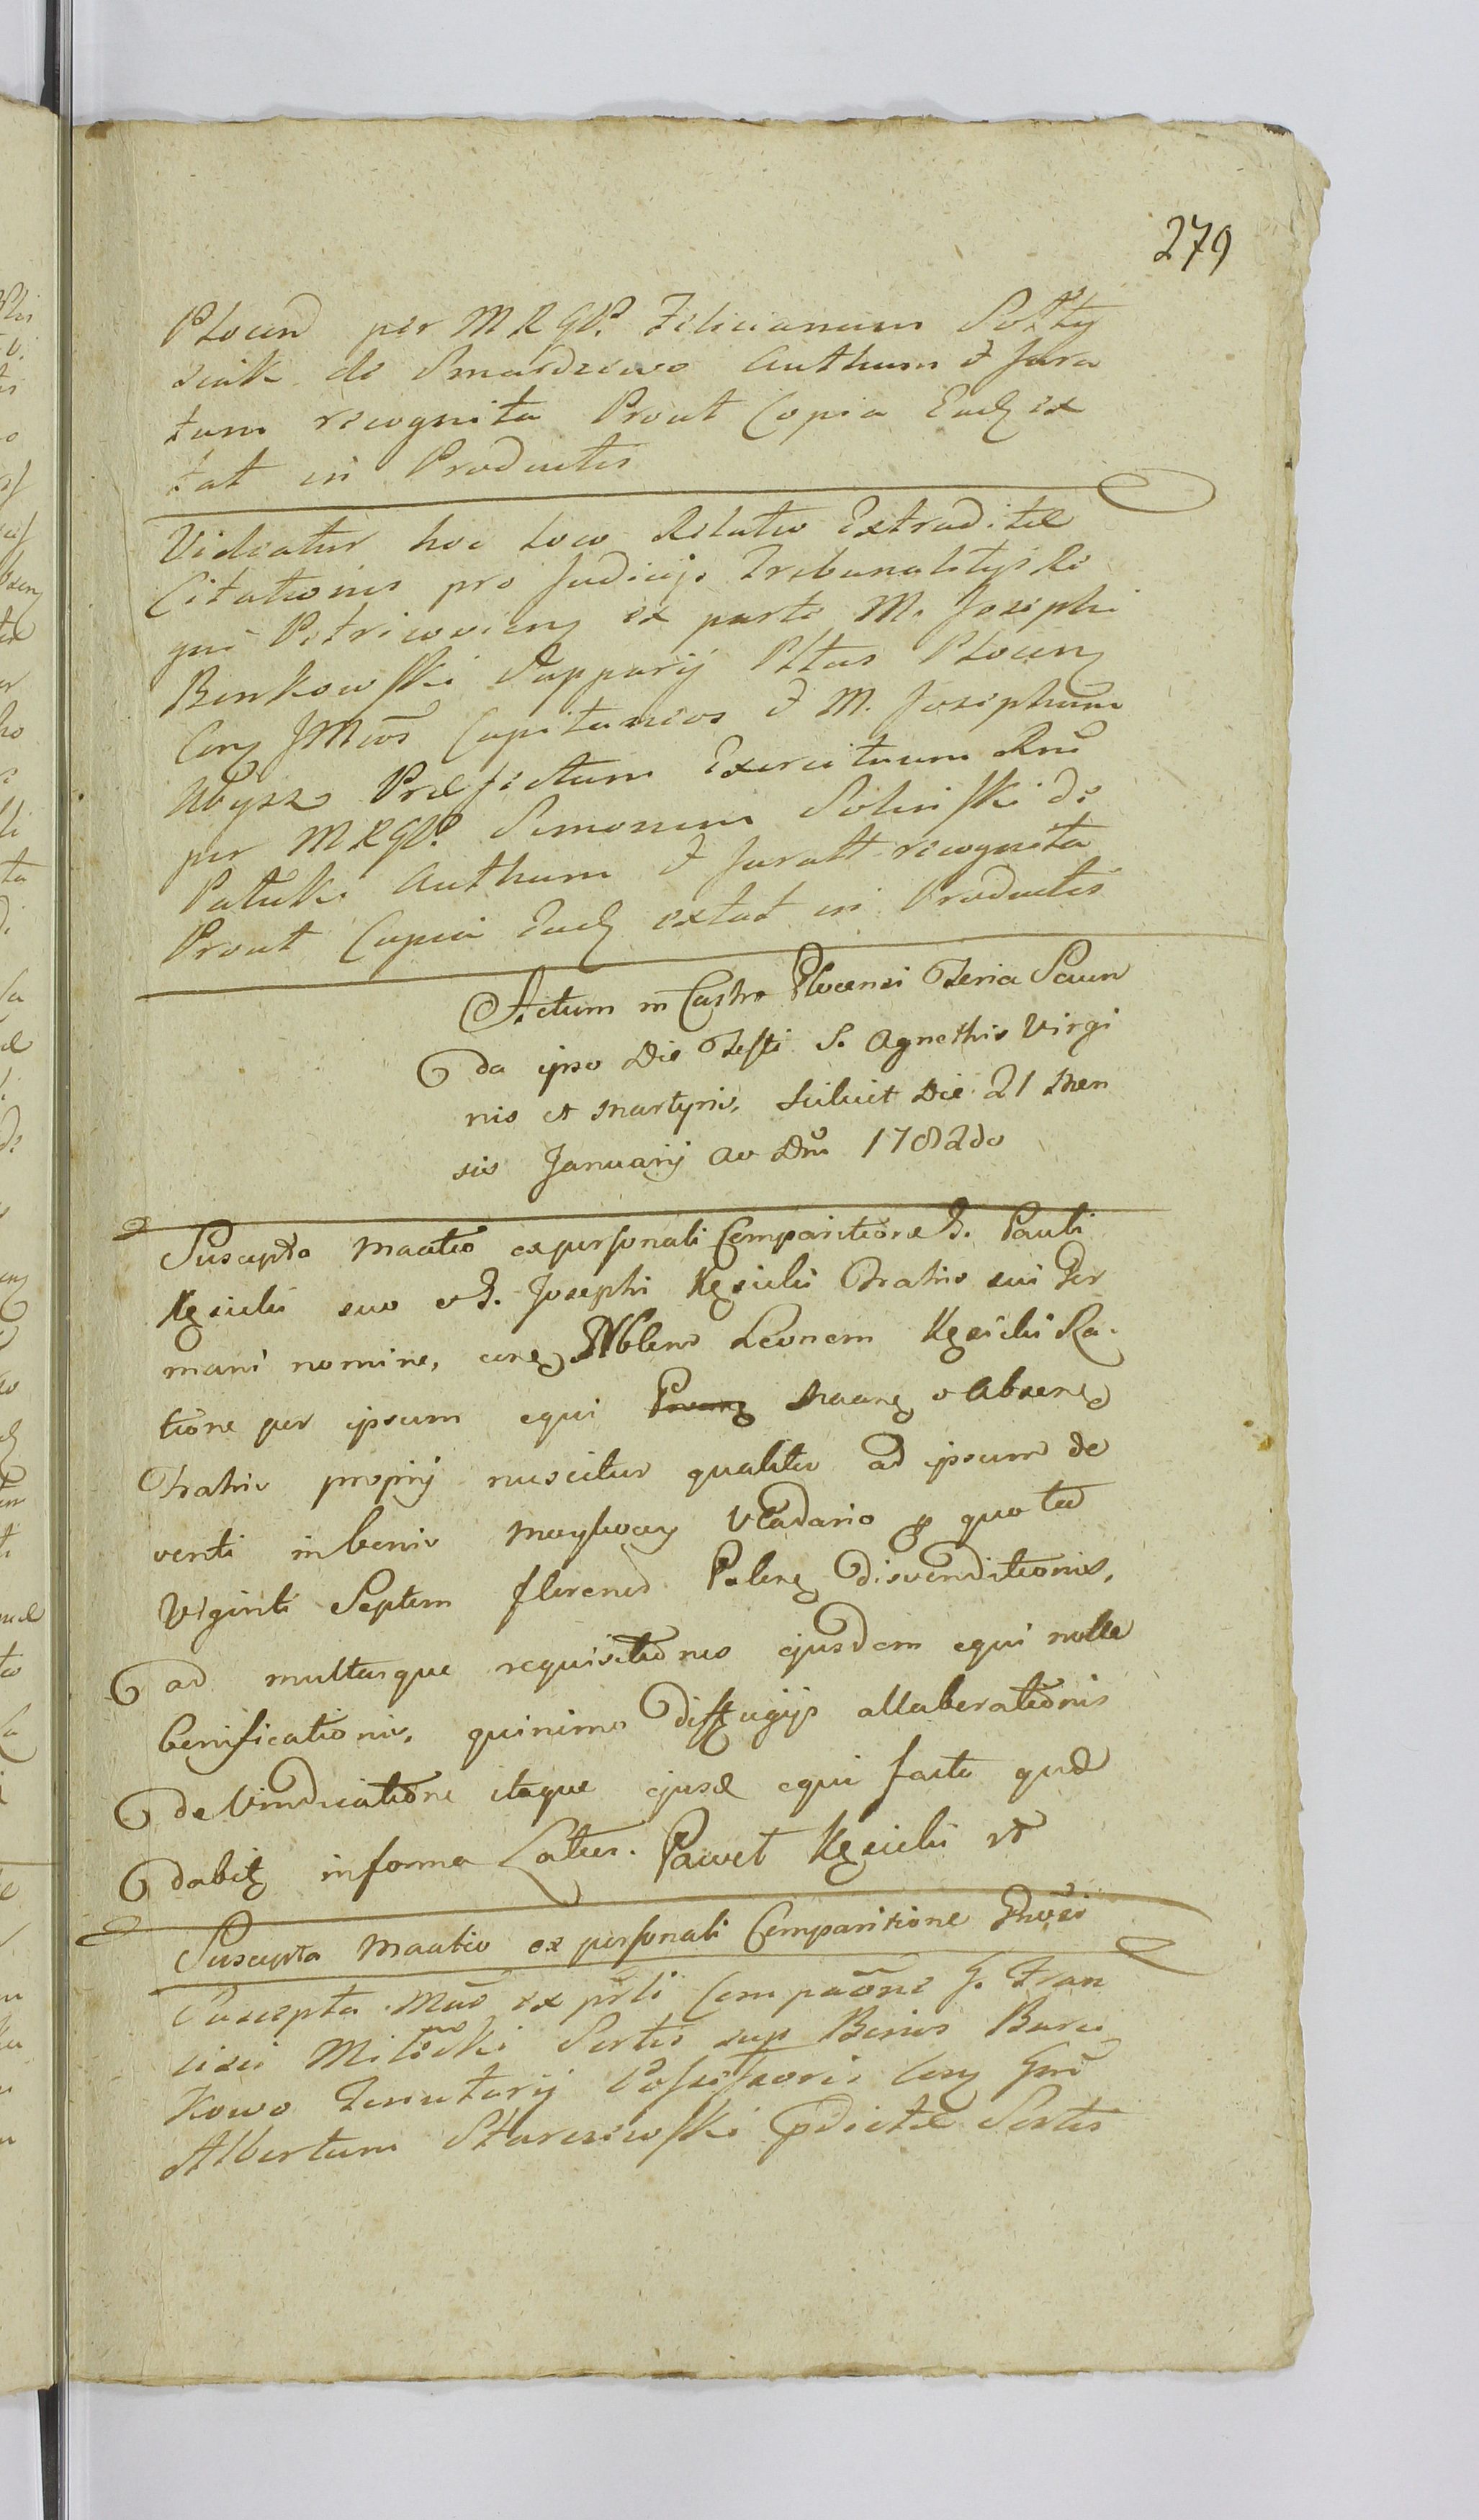 279
Plocen per M R GD. Felicianum Sołty
siak de Smardzewo Authum & Jura
tum recognita Prout Copia Ead ex
tat in Productis
Videatur hoc loco Relatio Extraditæ
Citationis pro Judicijs Tribunalitijs Re
gni Petricovien ex parte M. Josephi
Benkowski Dapparij Pltus Plocen
Con JMcos Capitaneos & M. Josephum
Ubysz Præfectum Exercituum Rni
per M R GD. Simonem Soliński de
Patuki Authum & Juratt recognita
Prout Copia Ead extat in Productis
Actum in Castro Plocensi Feria Secun
da ipso Die Festi S. Agnethis Virgi
nis et Martyris, scilicet Die 21 Men
sis Januarij Ao Dni 1782do
Suscepta Maatio ex personali Comparitione G. Pauli
Kęsicki suo & G. Josephi Kęsicki Fratris sui Ger
mani nomine, con Noblem Leonem Kęsicki Ra
tione per ipsum equi Maan & Absen
Fratris proprij nuscitur qualiter ad ipsum de
venti in benis Vladario quota
Viginti Septem florenos Polen disvenditionis,
ad multasque requisitiones ejusdem equi nolle
benificationis, quinimo diffugijs allaberationis
de Vindicatione itaque ejusd equi facta quæ
dabit in forma Latius. Paweł Kęsicki
Suscepta Maatio ex personali Comparitione
Suscepta Mao ex prli Compaone G. Fran
cisci Milocki Sortis sup Benis Bure
Kowo Tenutarij Possessoris Con Gm
Albertum Starczewski pdictæ Sortis